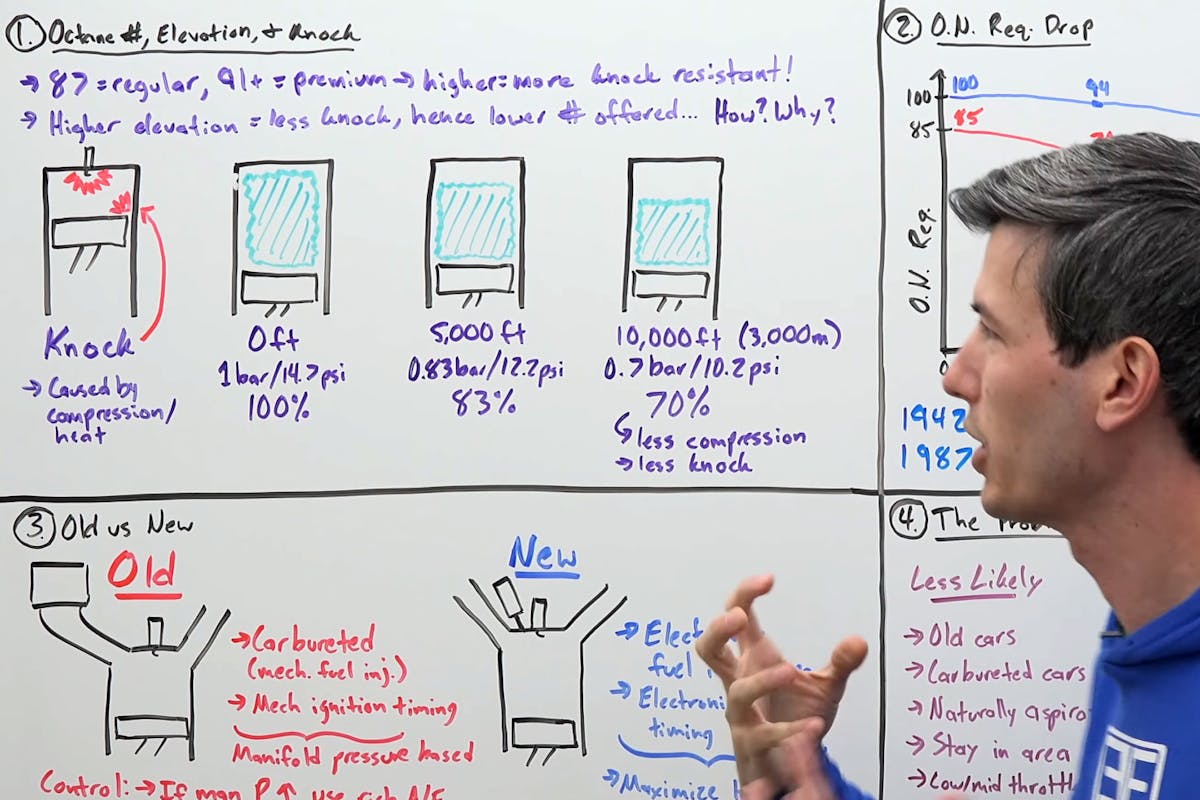 1. Octane #, Elevation, & Knock
→ 87 = regular, 91+ = premium → higher = more knock resistant!
→ Higher elevation = less knock, hence lower # offered... How? Why?
Knock
→ Caused by
compression/
heat
0ft
1bar/14.7psi
100%
5,000ft
0.83bar/12.2psi
83%
10,000ft (3,000m)
0.7bar/10.2psi
70%
↳ less compression
→ less knock
2. O.N. Req. Drop
100
100
94
85
85
O.N. Req.
1942
1987
3. Old vs New
Old
→ Carbureted
(mech. fuel inj.)
→ Mech ignition timing
Manifold pressure based
Control: → If man P ↑ use rich A/F
New
→
fuel
→
timing
→ Maximize
4. The
Less Likely
→ Old cars
→ Carbureted cars
→ Naturally
→ Stay in area
→ Low/mid